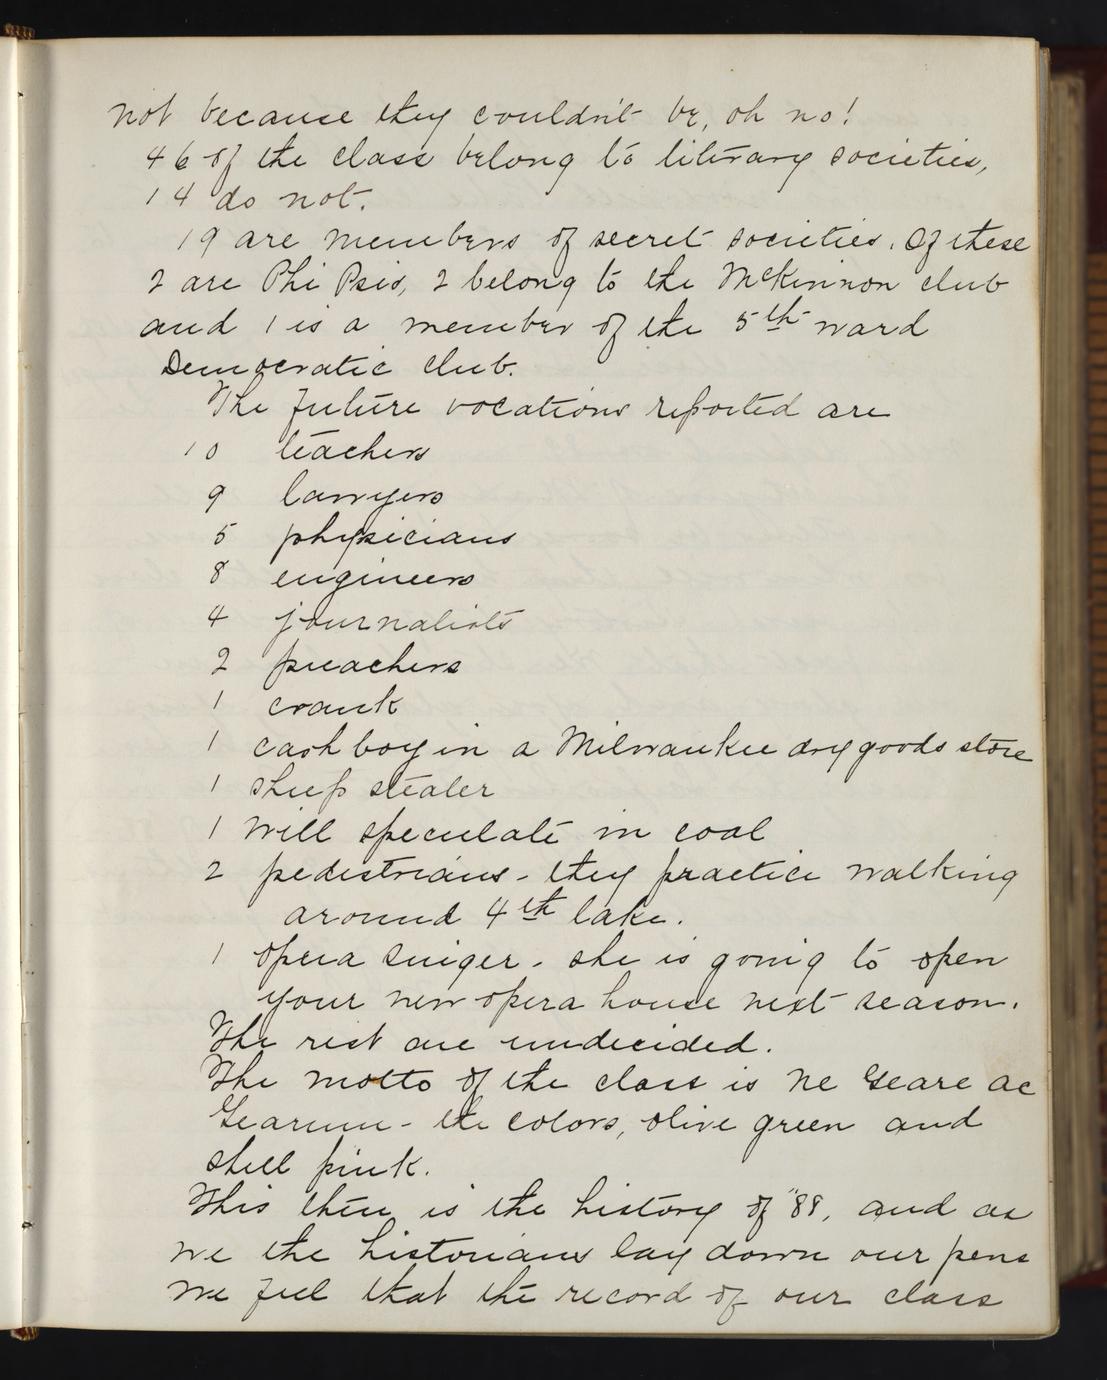 not because they couldn't be, oh no!
46 of the class belong to literary societies,
14 do not.
19 are members of secret societies. Of these
2 are Phi Psis, 2 belong to the McKinnon club
and 1 is a member of the 5th ward
Democratic club.
The future vocations reported are
10 teachers
9 lawyers
5 physicians
8 engineers
4 journalists
2 preachers
1 crank
1 cash boy in a Milwaukee dry goods store
1 sheep stealer
1 will speculate in coal
2 pedestrians - they practice walking
around 4th lake.
1 opera singer - she is going to open
your new opera house next season.
The rest are undecided.
The motto of the class is Ne Geare ac
Gearum - the colors, olive green and
shell pink.
This then is the history of "88, and as
we the historians lay down our pens
we feel that the record of our class